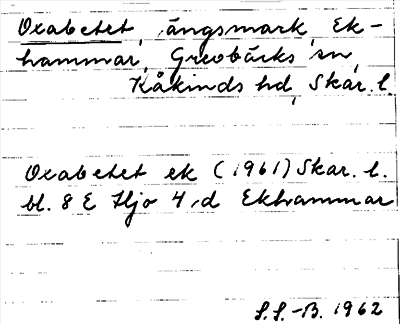 Oxabetet, ängsmark, Ek-
hammar, Grevbäcks sn,
Kåkinds hd, Skar. l.
Oxabetet ek (1961) Skar. l.
bl. 8 E Hjo 4 d Ekhammar
S.S.-B. 1962